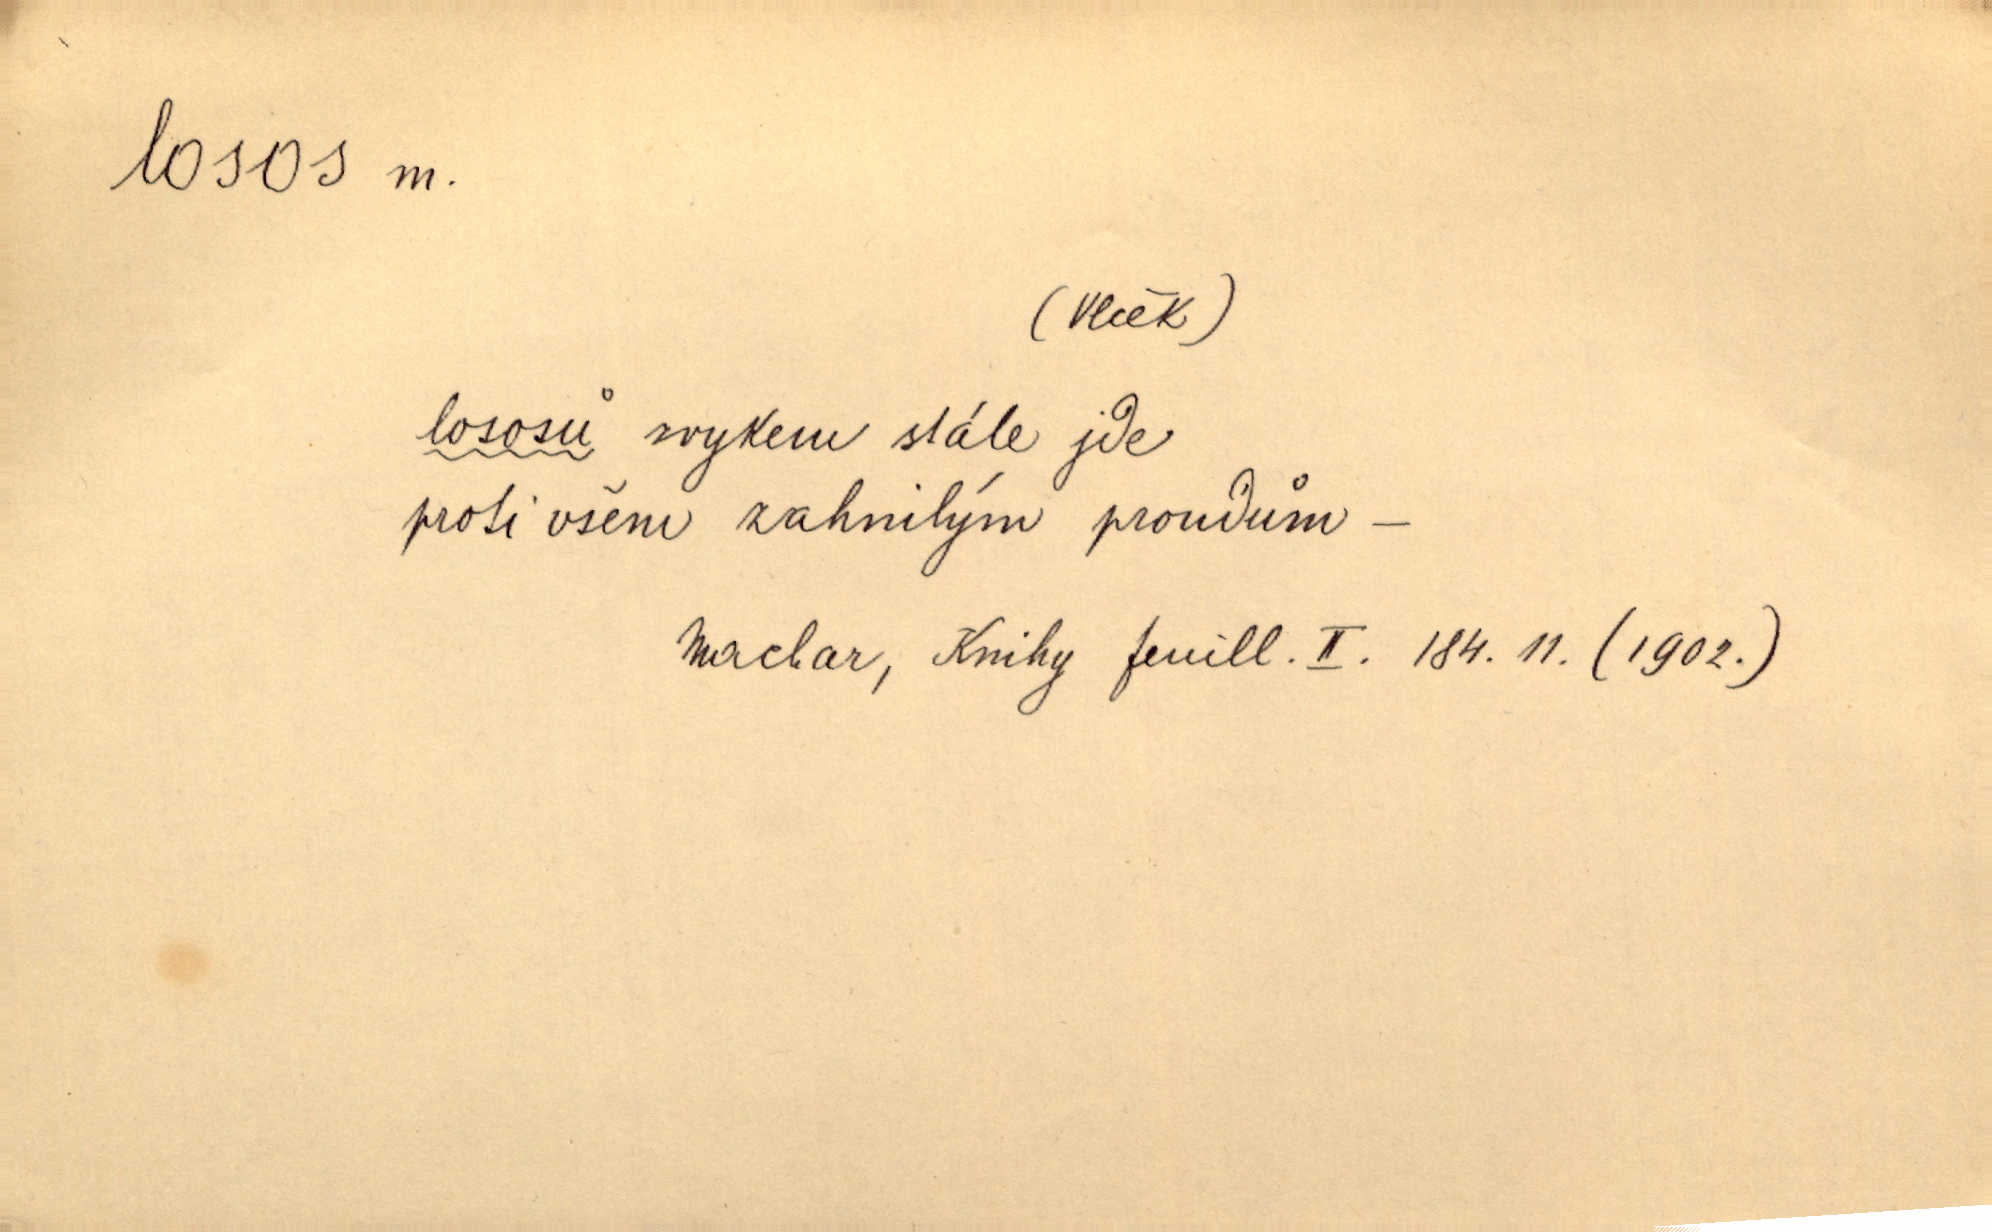 losos m.
(Vlček)
lososů zvykem stále jde
proti všem zahnilým proudům —
Machar, Knihy feuill. II. 184. 11. (1902.)